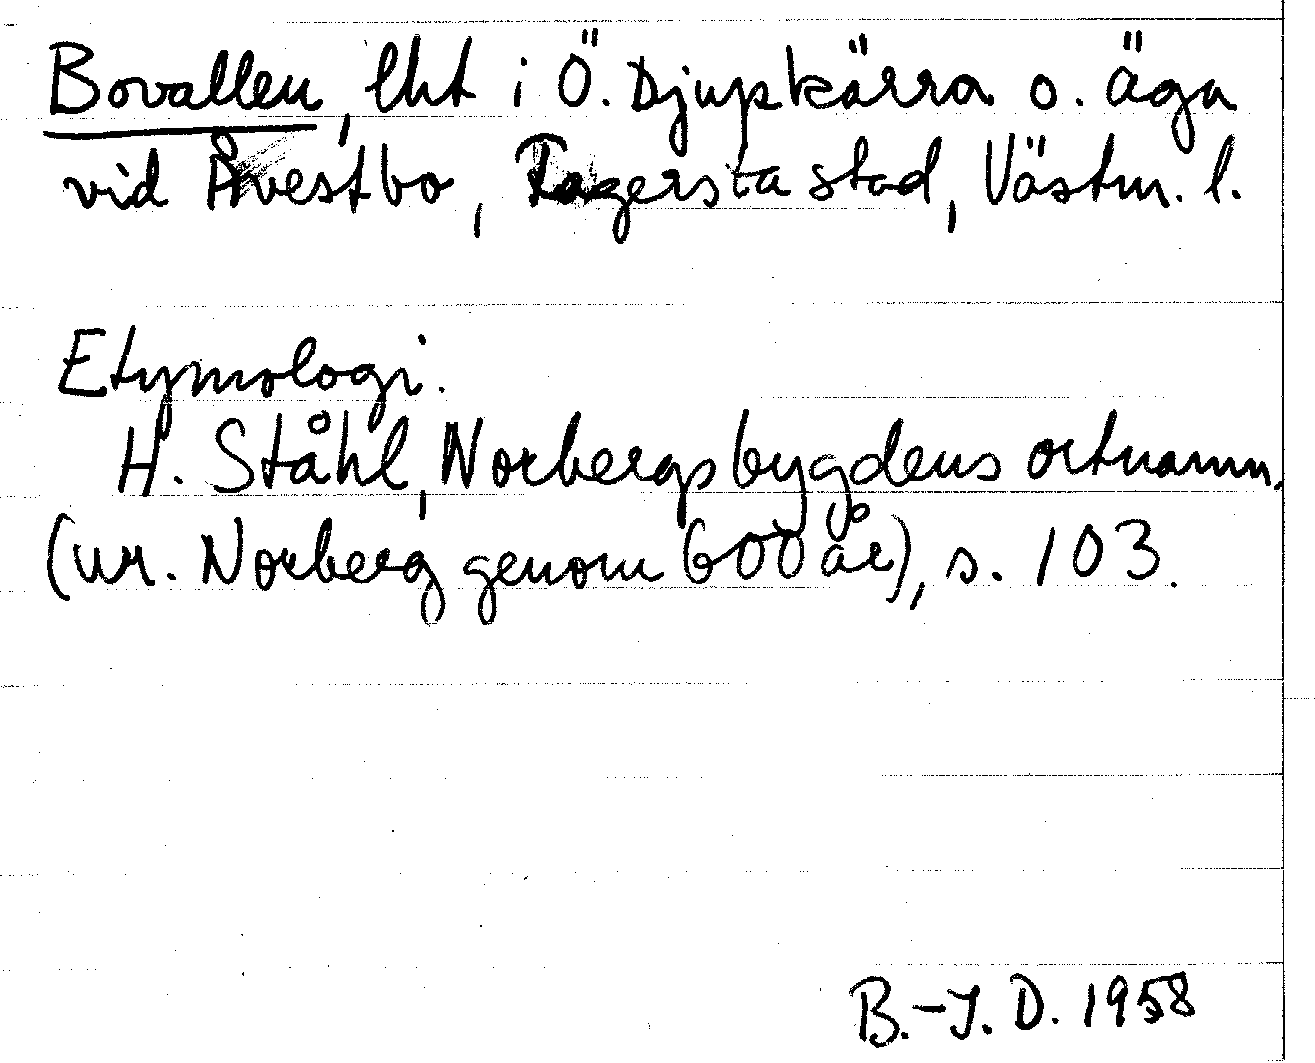 Bovallen, lht i Ö. Djupkärra o. äga
vid Åvestbo, Fagersta stad, Västm. l.
Etymologi.
H. Ståhl, Norbergsbygdens ortnamn.
(ur. Norberg genom 600 år), s. 103.
B.-J. D. 1958